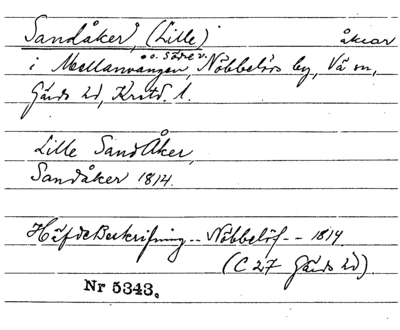 Sandåker, (Lille) åkrar
o. Södre v.
i Mellanvången, Nöbbelövs by, Vä sn,
Gärds hd, Krstd. l.
Lille SandÅker,
Sandåker 1814.
HäfdeBeskrifning -- Nöbbelöf -- 1814.
(C 27 Gärds hd)
Nr 5343.